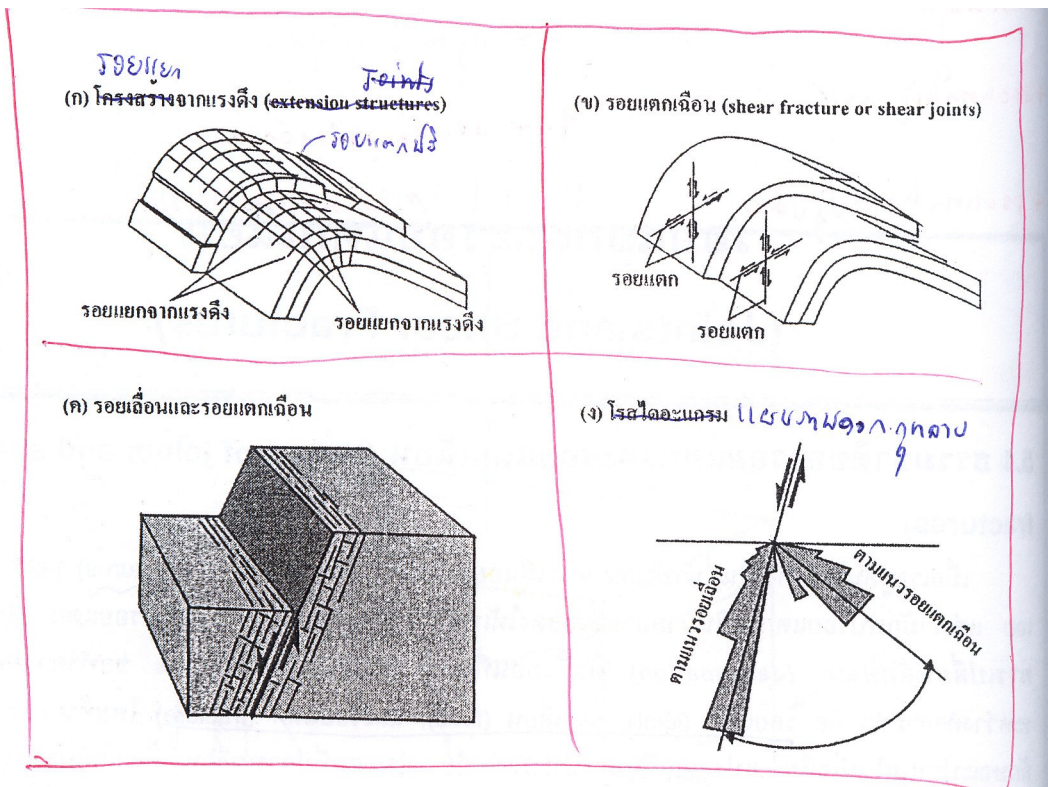 รอยแยก
Joints
(ก) โครงสร้างจากแรงดึง (extension structures)
รอยแตกปริ
รอยแยกจากแรงดึง
รอยแยกจากแรงดึง
(ข) รอยแตกเฉือน (shear fracture or shear joints)
รอยแตก
รอยแตก
(ค) รอยเลื่อนและรอยแตกเฉือน
(ง) โรสไดอะแกรม แผนภาพดอกกุหลาบ
ตามแนวรอยเฉือน
ตามแนวรอยแตกเฉือน